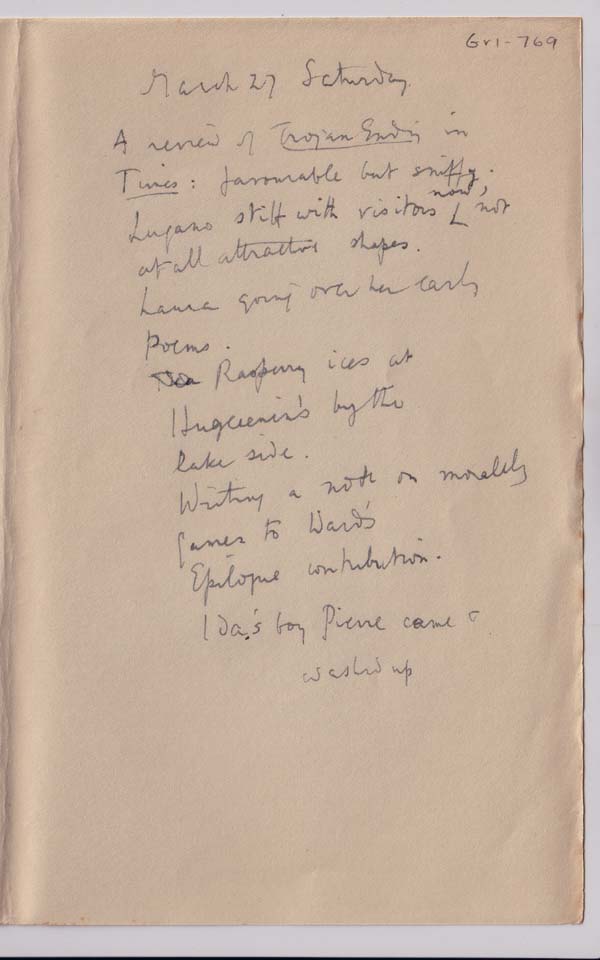 Gr1-769
March 27 Saturday
A review of Trojan Ending in
Times: favourable but sniffy.
Lugano stiff with visitors now, not
at all attractive shapes.
Laura going over her early
poems.
Raspberry ices at
Huguenin's by the
lake side.
Writing a note on morality
to Ward's
Epilogue contribution.
Ida's boy Pierre came &
washed up